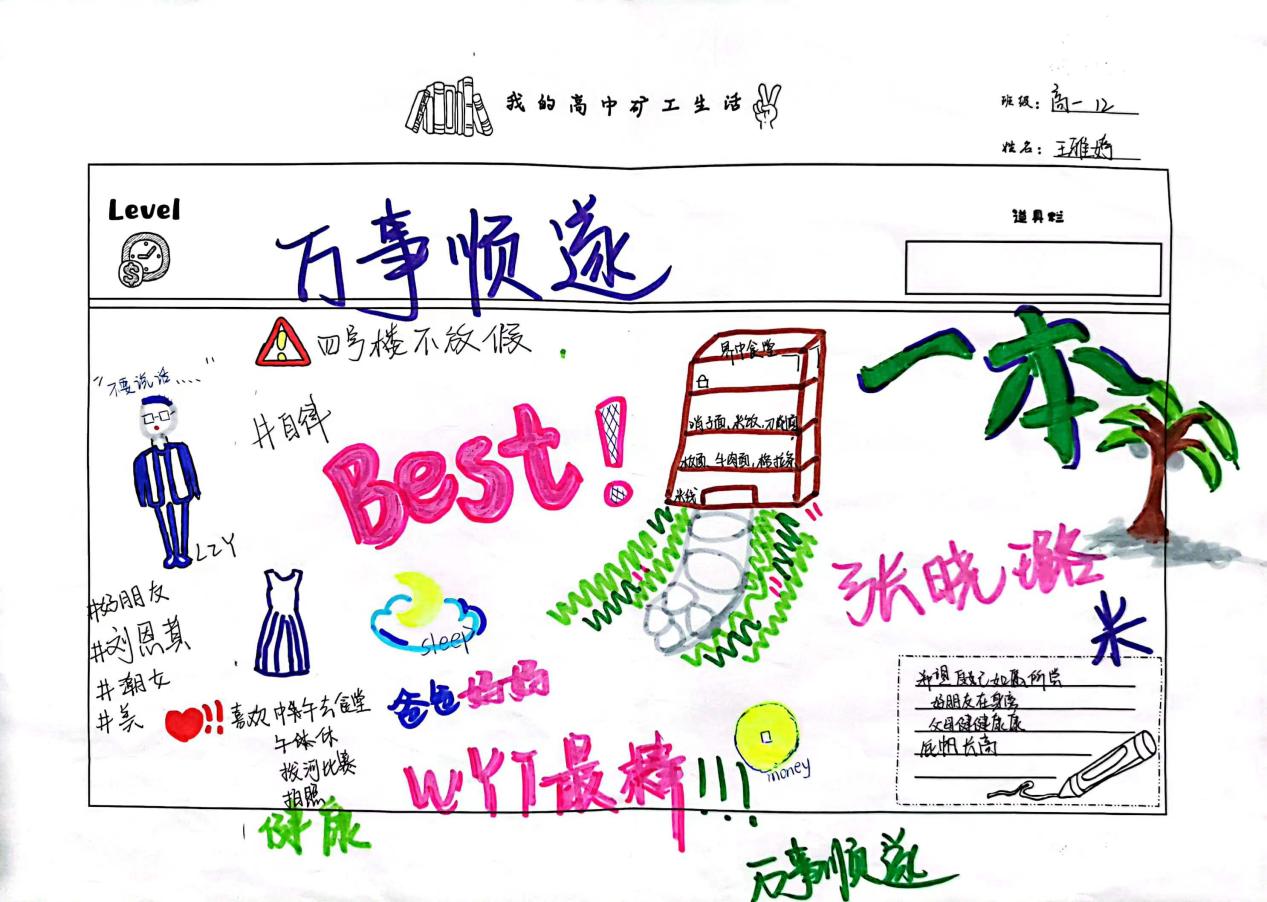 我的高中矿工生活
班级：高一 12
姓名：王雅婷
Level
万事顺遂
道具栏
四号楼不放假
一本
"不要说话...."
#自律
Best!
界中食堂
哨子面、米饭、刀削面
板面、牛肉面、格拉条
米线
LZY
张晓璐
#好朋友
#刘恩萁
#潮女
#美
sleep
米
爸爸妈妈
!!喜欢中午去食堂
午休
拔河比赛
拍照
健康
WYT最棒!!!
money
希望自己如愿所尝
好朋友在身旁
父母健健康康
万事顺遂